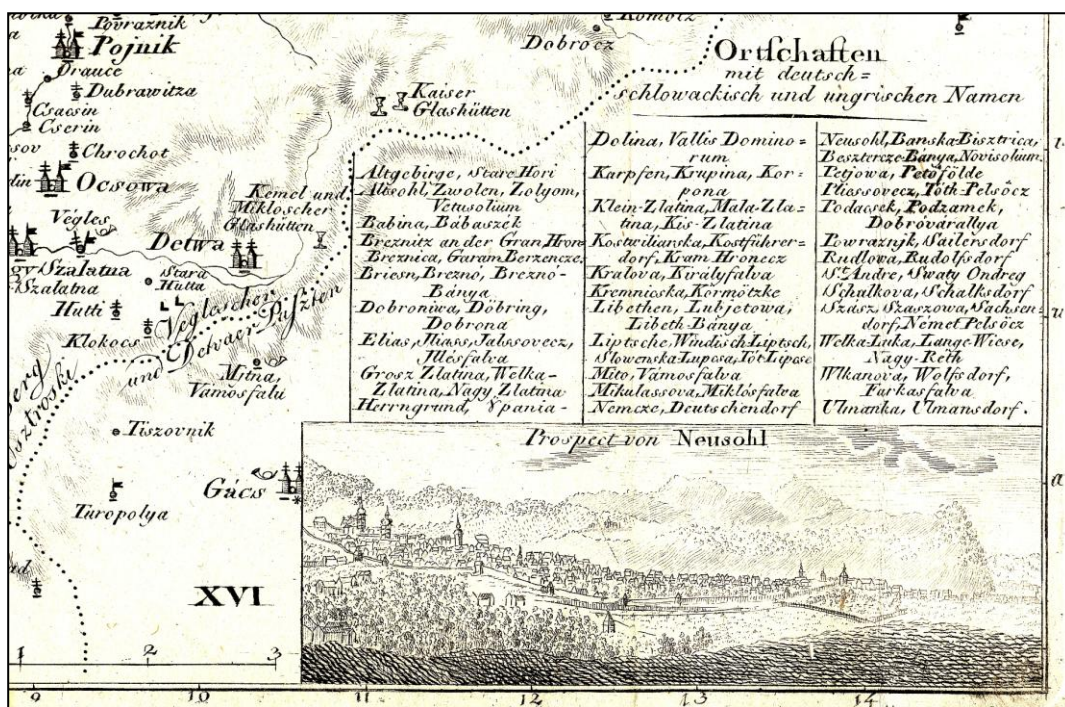 Povraznik
Pojnik
Drauce
Dubrawitza
Csacsin
Cserin
Chrochot
Ocsowa
Végles
Szalatna
Szalatna
Stara
Hutta
Detwa
Hutti
Klokocs
Kemel und
Mikloscher
Glashütten
Kaiser
Glashütten
Dobrocz
Veglescher
und Detvaer Puszten
Mitna,
Vámosfalu
Tiszovnik
Turopolya
Gács
XVI
1 2 3
9 10 11 12 13 14
Ortschaften
mit deutsch=
schlowackisch und ungrischen Namen
Altgebirge, Stare Hori
Altsohl, Zwolen, Zolyom,
Vetusolium
Babina, Bábaszék
Breznitz an der Gran, Hron
Breznica, Garam Berzencze
Briesn, Breznó, Breznó-
Bánya
Dobroniwa, Döbring,
Dobrona
Elias, Iliass, Jalssovecz,
Illésfalva
Grosz Zlatina, Welka-
Zlatina, Nagy Zlatina
Herrngrund, Spania-
Dolina, Vallis Domino=
rum
Karpfen, Krupina, Kor-
pona
Klein-Zlatina, Mala-Zla-
tina, Kis-Zlatina
Kostwilianska, Kostführer-
dorf, Kram Hronecz
Kralova, Királyfalva
Kremnicska, Körmötzke
Libethen, Lubjetowa,
Libeth Bánya
Liptsche, Windisch Liptsch,
Slowenska-Lupcsa, Tót Lipcse
Mito, Vámosfalva
Mikulassova, Miklósfalva
Nemcze, Deutschendorf
Neusohl, Banska-Bisztrica,
Beszterce-Bánya, Novisolium
Petjowa, Petöfölde
Pliessovecz, Tóth-Pelsöcz
Podacsek, Podzamek,
Dobrovárallya
Powraznjk, Sailersdorf
Rudlowa, Rudolfsdorf
St. Andre, Swaty Ondreg
Schalkova, Schalksdorf
Szász, Szaszowa, Sachsen-
dorf, Német Pelsöcz
Welka-Luka, Lange-Wiese,
Nagy-Réth
Wlkanova, Wolfsdorf,
Farkasfalva
Ulmanka, Ulmansdorf.
Prospect von Neusohl